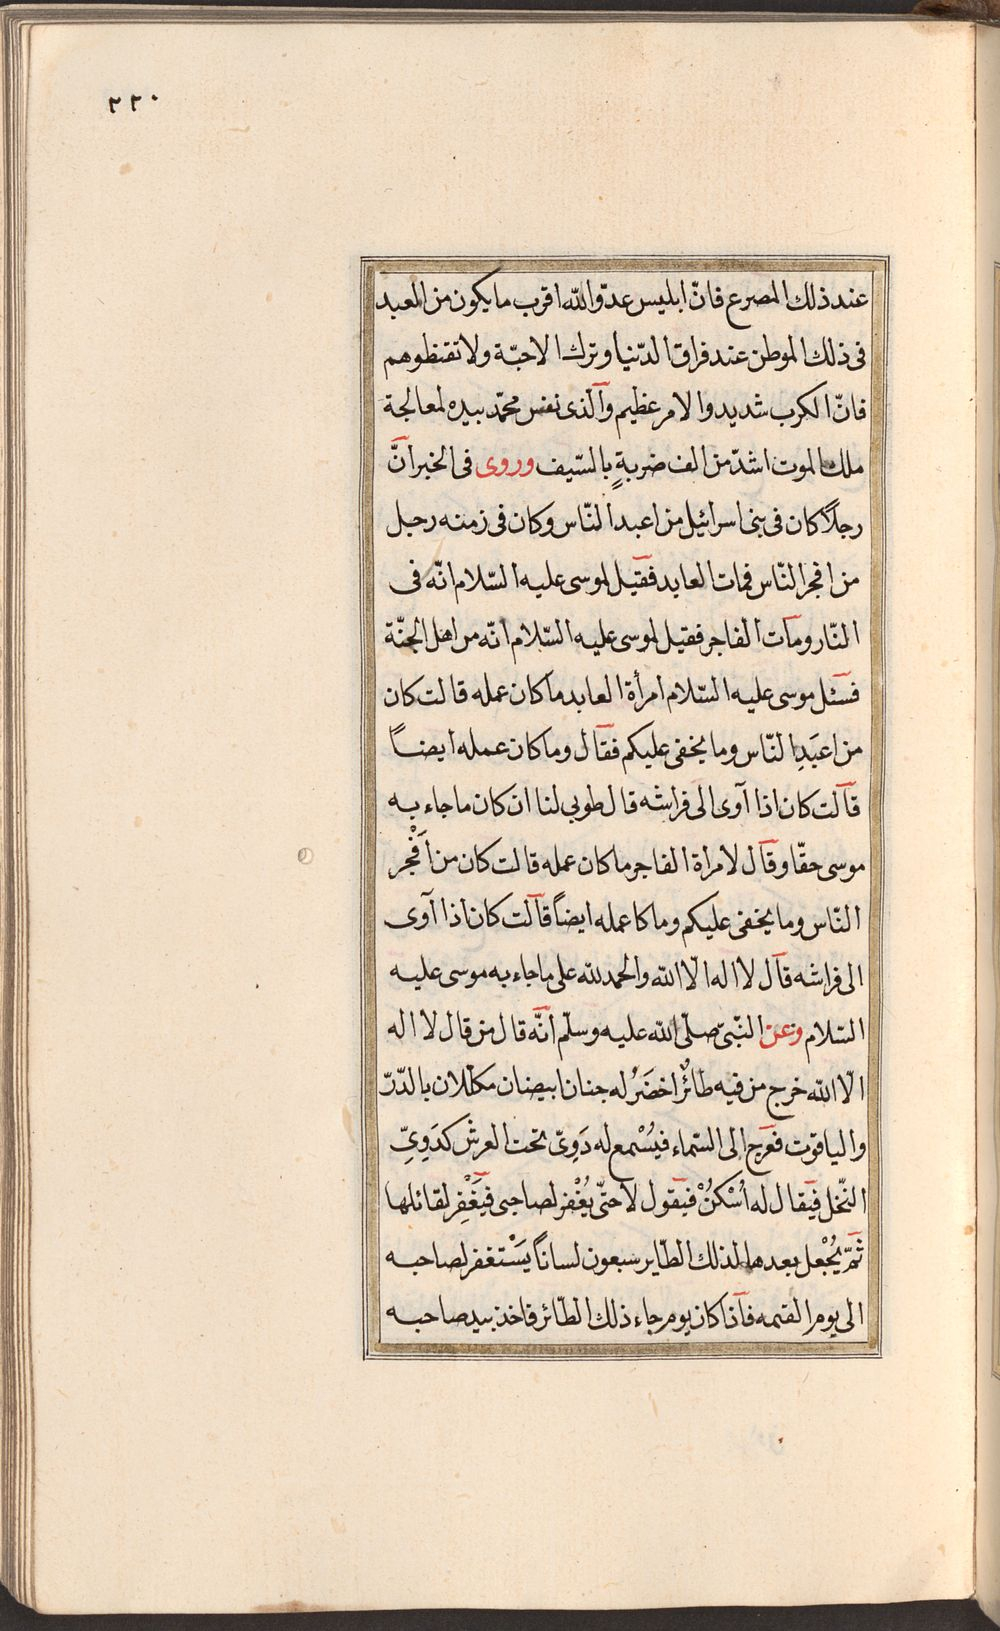 ٢٢٠
عند ذلك المصرع فانّ ابليس عدوّ الله اقرب ما يكون من العبد
فى ذلك الموطن عند فراق الدّنيا وترك الاحبّة ولا تقنطوهم
فانّ الكرب شديد والامر عظيم والّذى نفس محمّد بيده لمعالجة
ملك الموت اشدّ من الف ضربةٍ بالسّيف وروى فى الخبر انّ
رجلاً كان فى بنى اسرائيل من اعبد النّاس وكان فى زمنه رجل
من افجر النّاس فمات العابد فقيل لموسى عليه السّلام انّه فى
النّار ومات الفاجر فقيل لموسى عليه السّلام انّه من اهل الجنّة
فسئل موسى عليه السّلام امرأة العابد ما كان عمله قالت كان
من اعبَدِ النّاس وما يخفى عليكم فقال وما كان عمله ايضاً
قالت كان اذا آوى الى فراشه قال طوبى لنا ان كان ما جاء به
موسى حقّا وقال لامراة الفاجر ما كان عمله قالت كان من اَفْجر
النّاس وما يخفى عليكم وما كا عمله ايضاً قالت كان اذا آوى
الى فراشه قال لا اله الّا الله والحمد لله على ما جاء به موسى عليه
السّلام وعن النّبىّ صلّى الله عليه وسلّم انّه قال من قال لا اله
الّا الله خرج من فيه طائرٌ اخضَرُ له جنان ابيضان مكلّلان بالدّرّ
والياقوت فعرج الى السّماء فيُسْمع له دَوِىّ تحت العرش كدَوِىّ
النّحل فيقال له اُسْكنْ فيقول لا حتّى يُغْفر لصاحبى فيَغْفِر لقائلها
ثمّ يُجْعل بعدها لذلك الطّاير سبعون لساناً يَسْتغفر لصاحبه
الى يوم القيمه فاذا كان يوم جاء ذلك الطّائر فاخذ بيد صاحبه